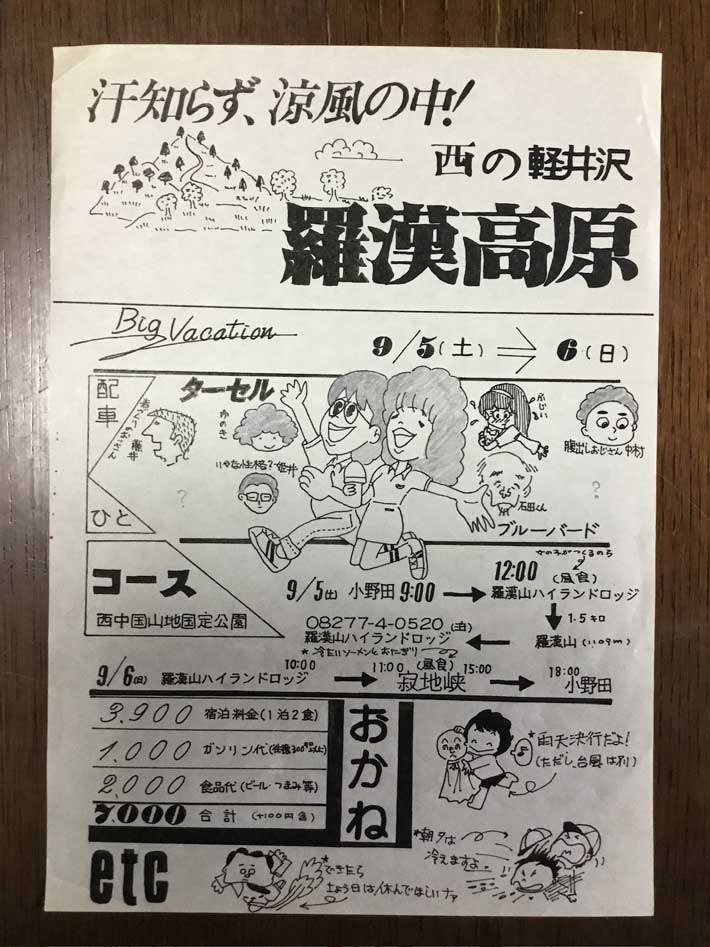 汗知らず、涼風の中!
西の軽井沢
羅漢高原
Big Vacation
9/5(土) ⇒ 6(日)
配車
ひと
ターセル
藤井
ゆのき
いやな性格?姫井
?
ふじい
腹出しおじさん 中村
石田くん
?
ブルーバード
コース
西中国山地国定公園
女の子がつくるのら
9/5(土) 小野田 9:00 → 12:00(昼食) 羅漢山ハイランドロッジ
↓ 1.5キロ
羅漢山(1109m)
← 08277-4-0520(泊)
羅漢山ハイランドロッジ
*冷たいソーメンとおにぎり
9/6(日) 羅漢山ハイランドロッジ 10:00 → 11:00(昼食)15:00 寂地峡 → 18:00 小野田
3,900 宿泊料金(1泊2食)
1,000 ガソリン代(往復300
2,000 食品代(ビール・つまみ等)
7,000 合計(+100円含)
おかね
*雨天決行だよ!
(ただし、台風は別)
*朝夕は
冷えますよ。
etc
*できたら
土よう日は、休んでほしいナァ